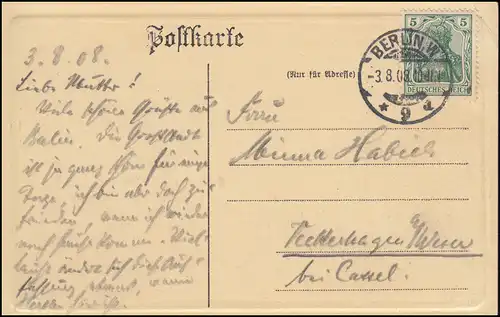 Postkarte
(Nur für Adresse)
5 5
DEUTSCHES REICH
BERLIN.W.
-3.8.08.
* 9 d
3.8.08.
Liebe Mutter!
Viele schöne Grüße aus
Berlin. Die Großstadt
ist ja ganz schön für einige
Tage, ich bin aber doch zu-
frieden, wenn ich wieder
nach Hause komme. Viel-
leicht ändert sich diese Auf-
fassung etwas, wenn
Frau
Minna Habich
Veckerhagen a/Weser
bei Cassel.